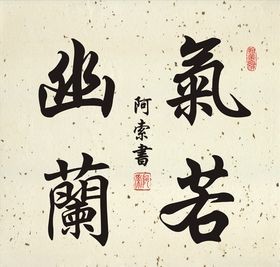 氣若
幽蘭
阿索書